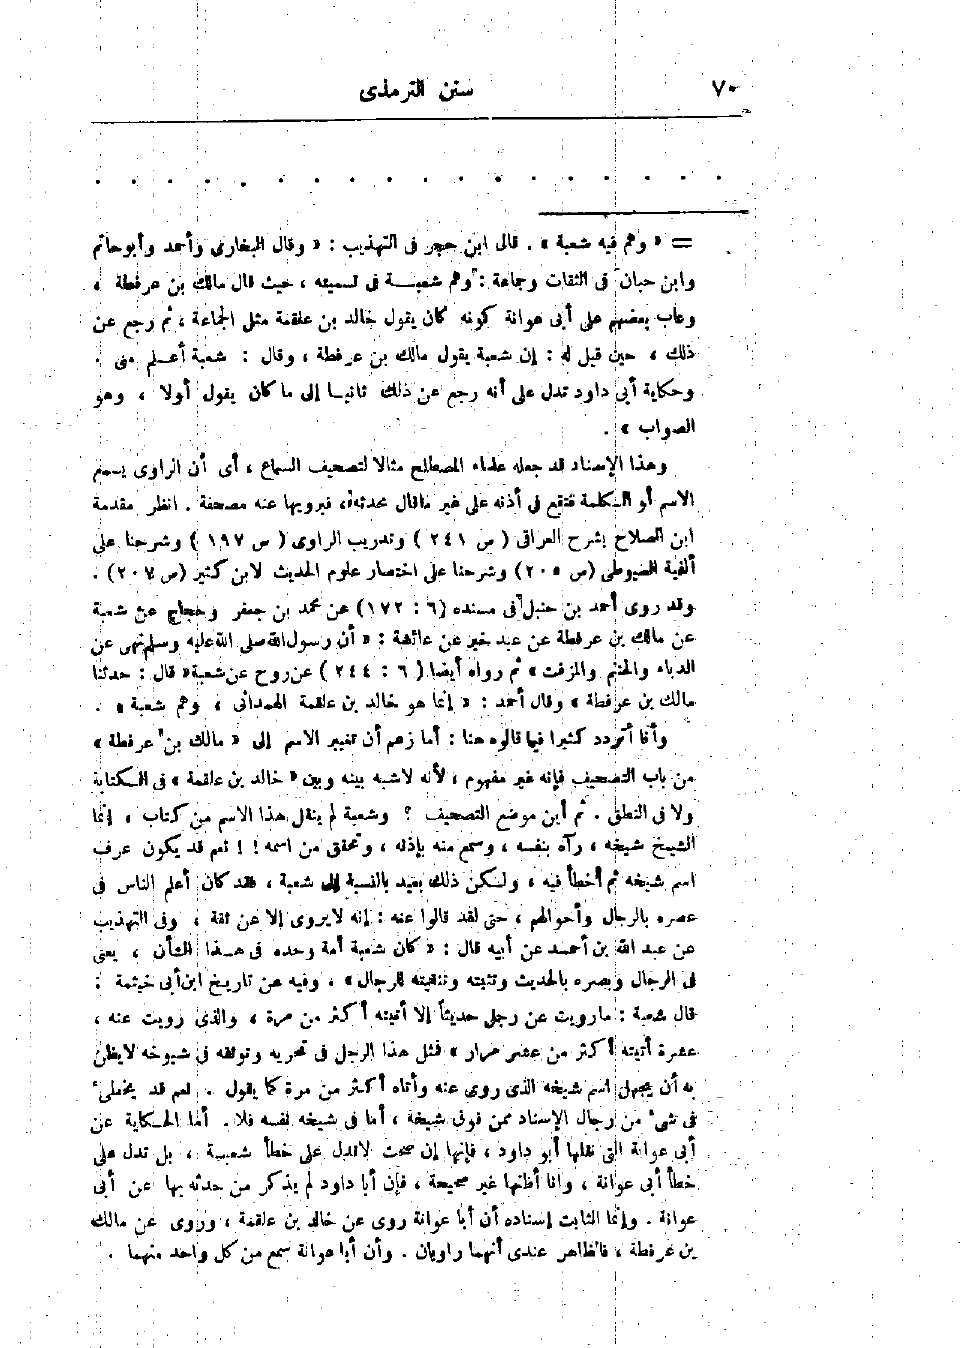 ٧٠
سنن الترمذى
= « وهم فيه شعبة » . قال ابن حجر فى التهذيب : « وقال البخارى وأحمد وأبو حاتم
وابن حبان فى الثقات وجماعة : وهم شعبة فى تسميته ، حيث قال مالك بن عرفطة ،
وعاب بعضهم على أبى عوانة كونه كان يقول خالد بن علقمة مثل الجماعة ، ثم رجع عن
ذلك ، حين قيل له : إن شعبة يقول مالك بن عرفطة ، وقال : شعبة أعلم منى .
وحكاية أبى داود تدل على أنه رجع عن ذلك ثانيا إلى ما كان يقول أولا ، وهو
الصواب » .
وهذا الإسناد قد جعله علماء المصطلح مثالا لتصحيف السماع ، أى أن الراوى يسمع
الاسم أو الكلمة فتقع فى أذنه على غير ما قال محدثه ، فيرويها عنه مصحفة . انظر مقدمة
ابن الصلاح بشرح العراقى ( ص ٢٤١ ) وتدريب الراوى ( ص ١٩٧ ) وشرحنا على
ألفية السيوطى (ص ٢٠٥) وشرحنا على اختصار علوم الحديث لابن كثير (ص ٢٠٧) .
وقد روى أحمد بن حنبل فى مسنده (٦ : ١٧٢) عن محمد بن جعفر وحجاج عن شعبة
عن مالك بن عرفطة عن عبد خير عن عائشة : « أن رسول الله صلى الله عليه وسلم نهى عن
الدباء والحنتم والمزفت » ثم رواه أيضا ( ٦ : ٢٤٤ ) عن روح عن شعبة « قال : حدثنا
مالك بن عرفطة » وقال أحمد : « إنما هو خالد بن علقمة الهمدانى ، وهم شعبة » .
وأنا أتردد كثيرا فيما قالوه هنا : أما زعم أن تغيير الاسم إلى « مالك بن عرفطة »
من باب التصحيف فإنه غير مفهوم ، لأنه لا شبه بينه وبين « خالد بن علقمة » فى الكتابة
ولا فى النطق . ثم أين موضع التصحيف ؟ وشعبة لم ينقل هذا الاسم من كتاب ، إنما
الشيخ شيخه ، رآه بنفسه ، وسمع منه بإذنه ، وتحقق من اسمه ! ! نعم قد يكون عرف
اسم شيخه ثم أخطأ فيه ، ولكن ذلك بعيد بالنسبة إلى شعبة ، فقد كان أعلم الناس فى
عصره بالرجال وأحوالهم ، حتى لقد قالوا عنه : إنه لا يروى إلا عن ثقة ، وفى التهذيب
عن عبد الله بن أحمد عن أبيه قال : « كان شعبة أمة وحده فى هذا الشأن ، يعنى
فى الرجال وبصره بالحديث وتثبته وتنقيته للرجال » ، وفيه عن تاريخ ابن أبى خيثمة :
قال شعبة : ما رويت عن رجل حديثاً إلا أتيته أكثر من مرة ، والذى رويت عنه ،
عشرة أتيته أكثر من عشر مرار » فمثل هذا الرجل فى تحريه وتوثقه فى شيوخه لا يظن
به أن يجهل اسم شيخه الذى روى عنه وأتاه أكثر من مرة كما يقول . نعم قد يخطئ
فى شىء من رجال الإسناد ممن فوق شيخه ، أما فى شيخه نفسه فلا . أما الحكاية عن
أبى عوانة التى نقلها أبو داود ، فإنها إن صحت لا تدل على خطأ شعبة ، بل تدل على
خطأ أبى عوانة ، وأنا أظنها غير صحيحة ، فإن أبا داود لم يذكر من حدثه بها عن أبى
عوانة . وإنما الثابت إسناده أن أبا عوانة روى عن خالد بن علقمة ، وروى عن مالك
بن عرفطة ، فالظاهر عندى أنهما راويان . وأن أبا عوانة سمع من كل واحد منهما .